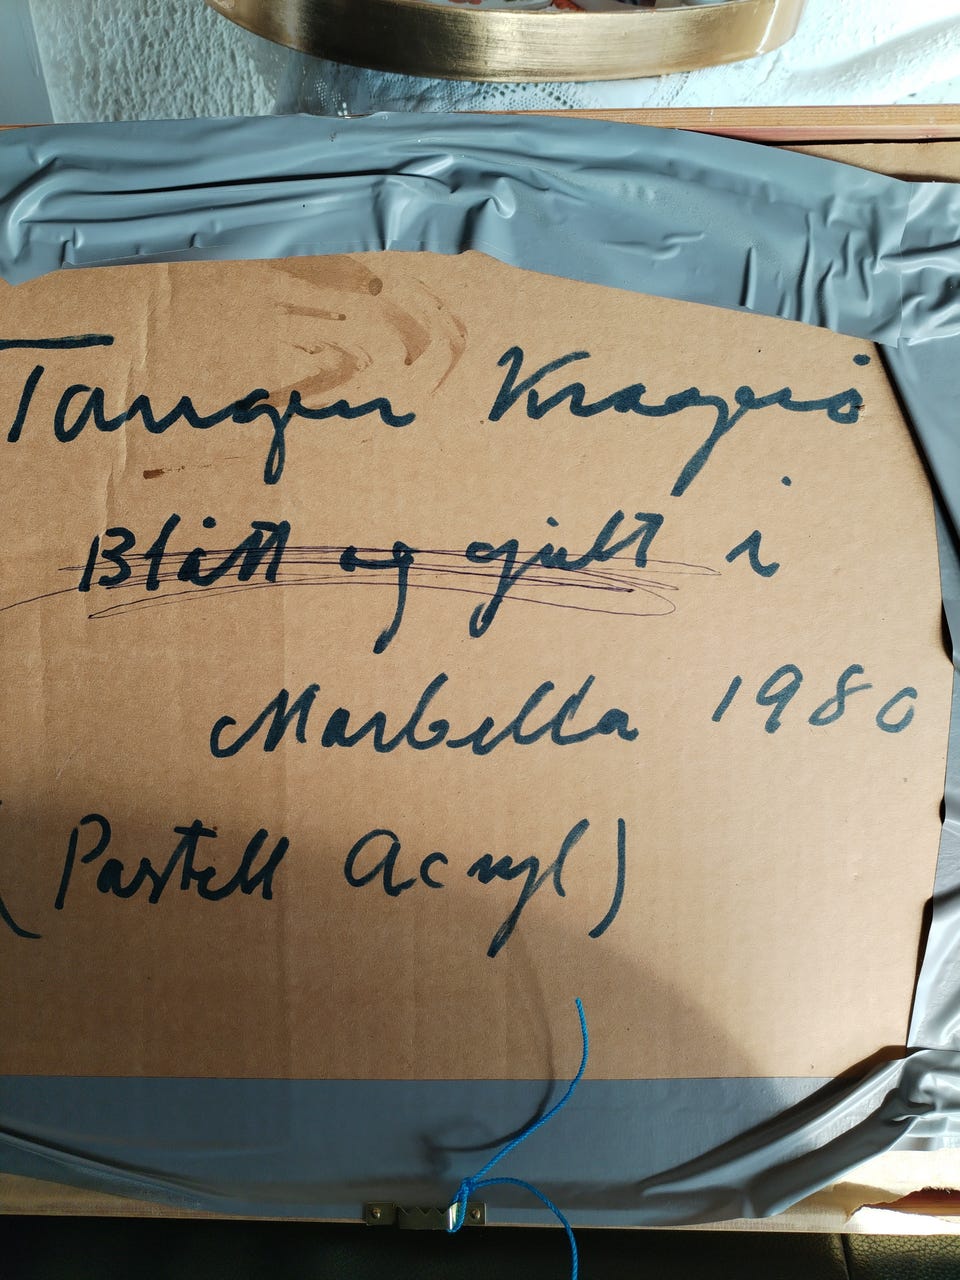 Tangen Kragerø
Blått og gult i
Marbella 1980
(Pastell Acryl)